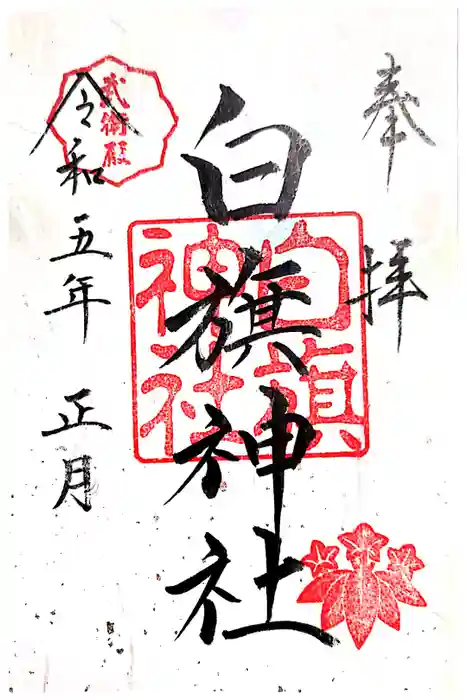 奉拝
白旗神社
白旗神社
令和五年 正月
武衛殿